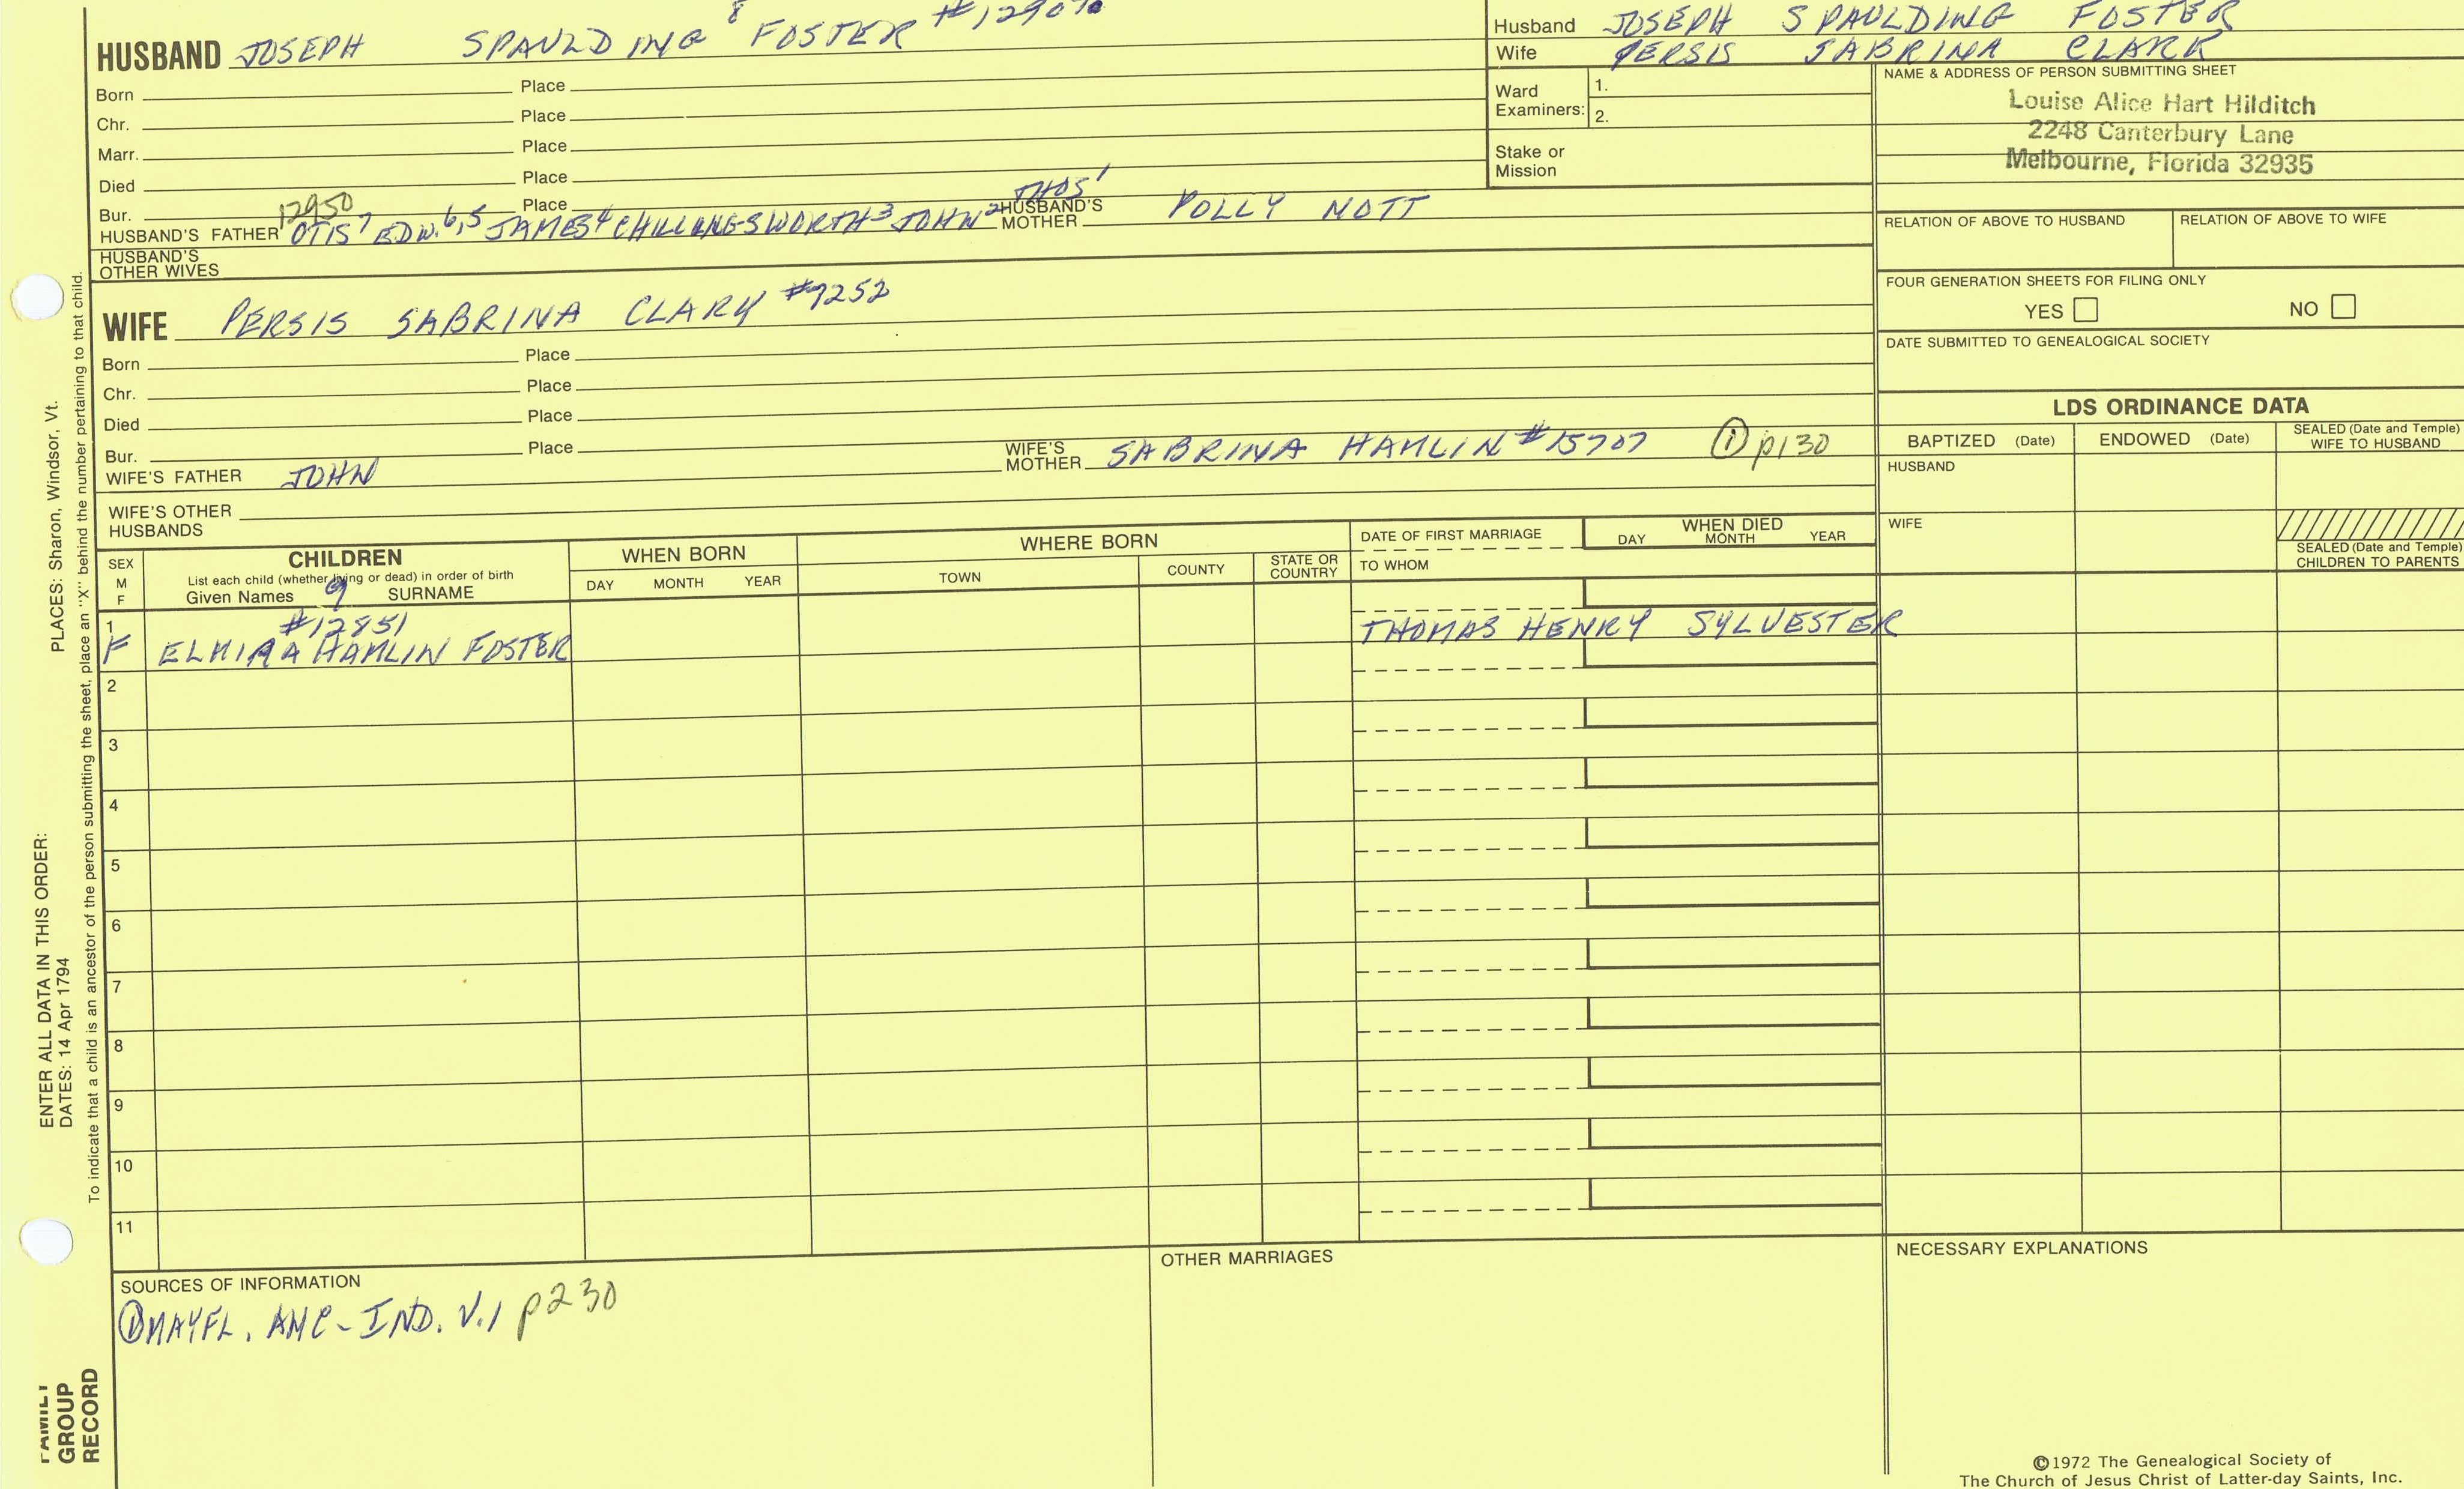 HUSBAND JOSEPH SPAULDING 8 FOSTER
Born Place
Chr. Place
Marr. Place
Died Place
Bur. Place
12950 THOS 1
HUSBAND'S FATHER OTIS 7 EDW. 6,5 JAMES 4 CHILLINGSWORTH 3 JOHN 2 HUSBAND'S MOTHER POLLY NOTT
HUSBAND'S OTHER WIVES
WIFE PERSIS SABRINA CLARK #7252
Born Place
Chr. Place
Died Place
Bur. Place
WIFE'S FATHER JOHN WIFE'S MOTHER SABRINA HAMLIN #15707 ① p130
WIFE'S OTHER HUSBANDS
Husband JOSEPH SPAULDING FOSTER
Wife PERSIS SABRINA CLARK
Ward Examiners: 1.
2.
Stake or Mission
NAME & ADDRESS OF PERSON SUBMITTING SHEET
Louise Alice Hart Hilditch
2248 Canterbury Lane
Melbourne, Florida 32935
RELATION OF ABOVE TO HUSBAND RELATION OF ABOVE TO WIFE
FOUR GENERATION SHEETS FOR FILING ONLY
YES NO
DATE SUBMITTED TO GENEALOGICAL SOCIETY
LDS ORDINANCE DATA
BAPTIZED (Date) ENDOWED (Date) SEALED (Date and Temple) WIFE TO HUSBAND
HUSBAND
WIFE
SEALED (Date and Temple) CHILDREN TO PARENTS
SEX M F
CHILDREN
List each child (whether living or dead) in order of birth
Given Names 9 SURNAME
WHEN BORN
DAY MONTH YEAR
WHERE BORN
TOWN COUNTY STATE OR COUNTRY
DATE OF FIRST MARRIAGE
TO WHOM
WHEN DIED
DAY MONTH YEAR
1 #12851
F ELMIRA HAMLIN FOSTER THOMAS HENRY SYLVESTER
2
3
4
5
6
7
8
9
10
11
SOURCES OF INFORMATION
① MAYFL. ANC- IND. V.1 p230
OTHER MARRIAGES
NECESSARY EXPLANATIONS
©1972 The Genealogical Society of
The Church of Jesus Christ of Latter-day Saints, Inc.
ENTER ALL DATA IN THIS ORDER:
DATES: 14 Apr 1794
PLACES: Sharon, Windsor, Vt.
To indicate that a child is an ancestor of the person submitting the sheet, place an "X" behind the number pertaining to that child.
FAMILY
GROUP
RECORD